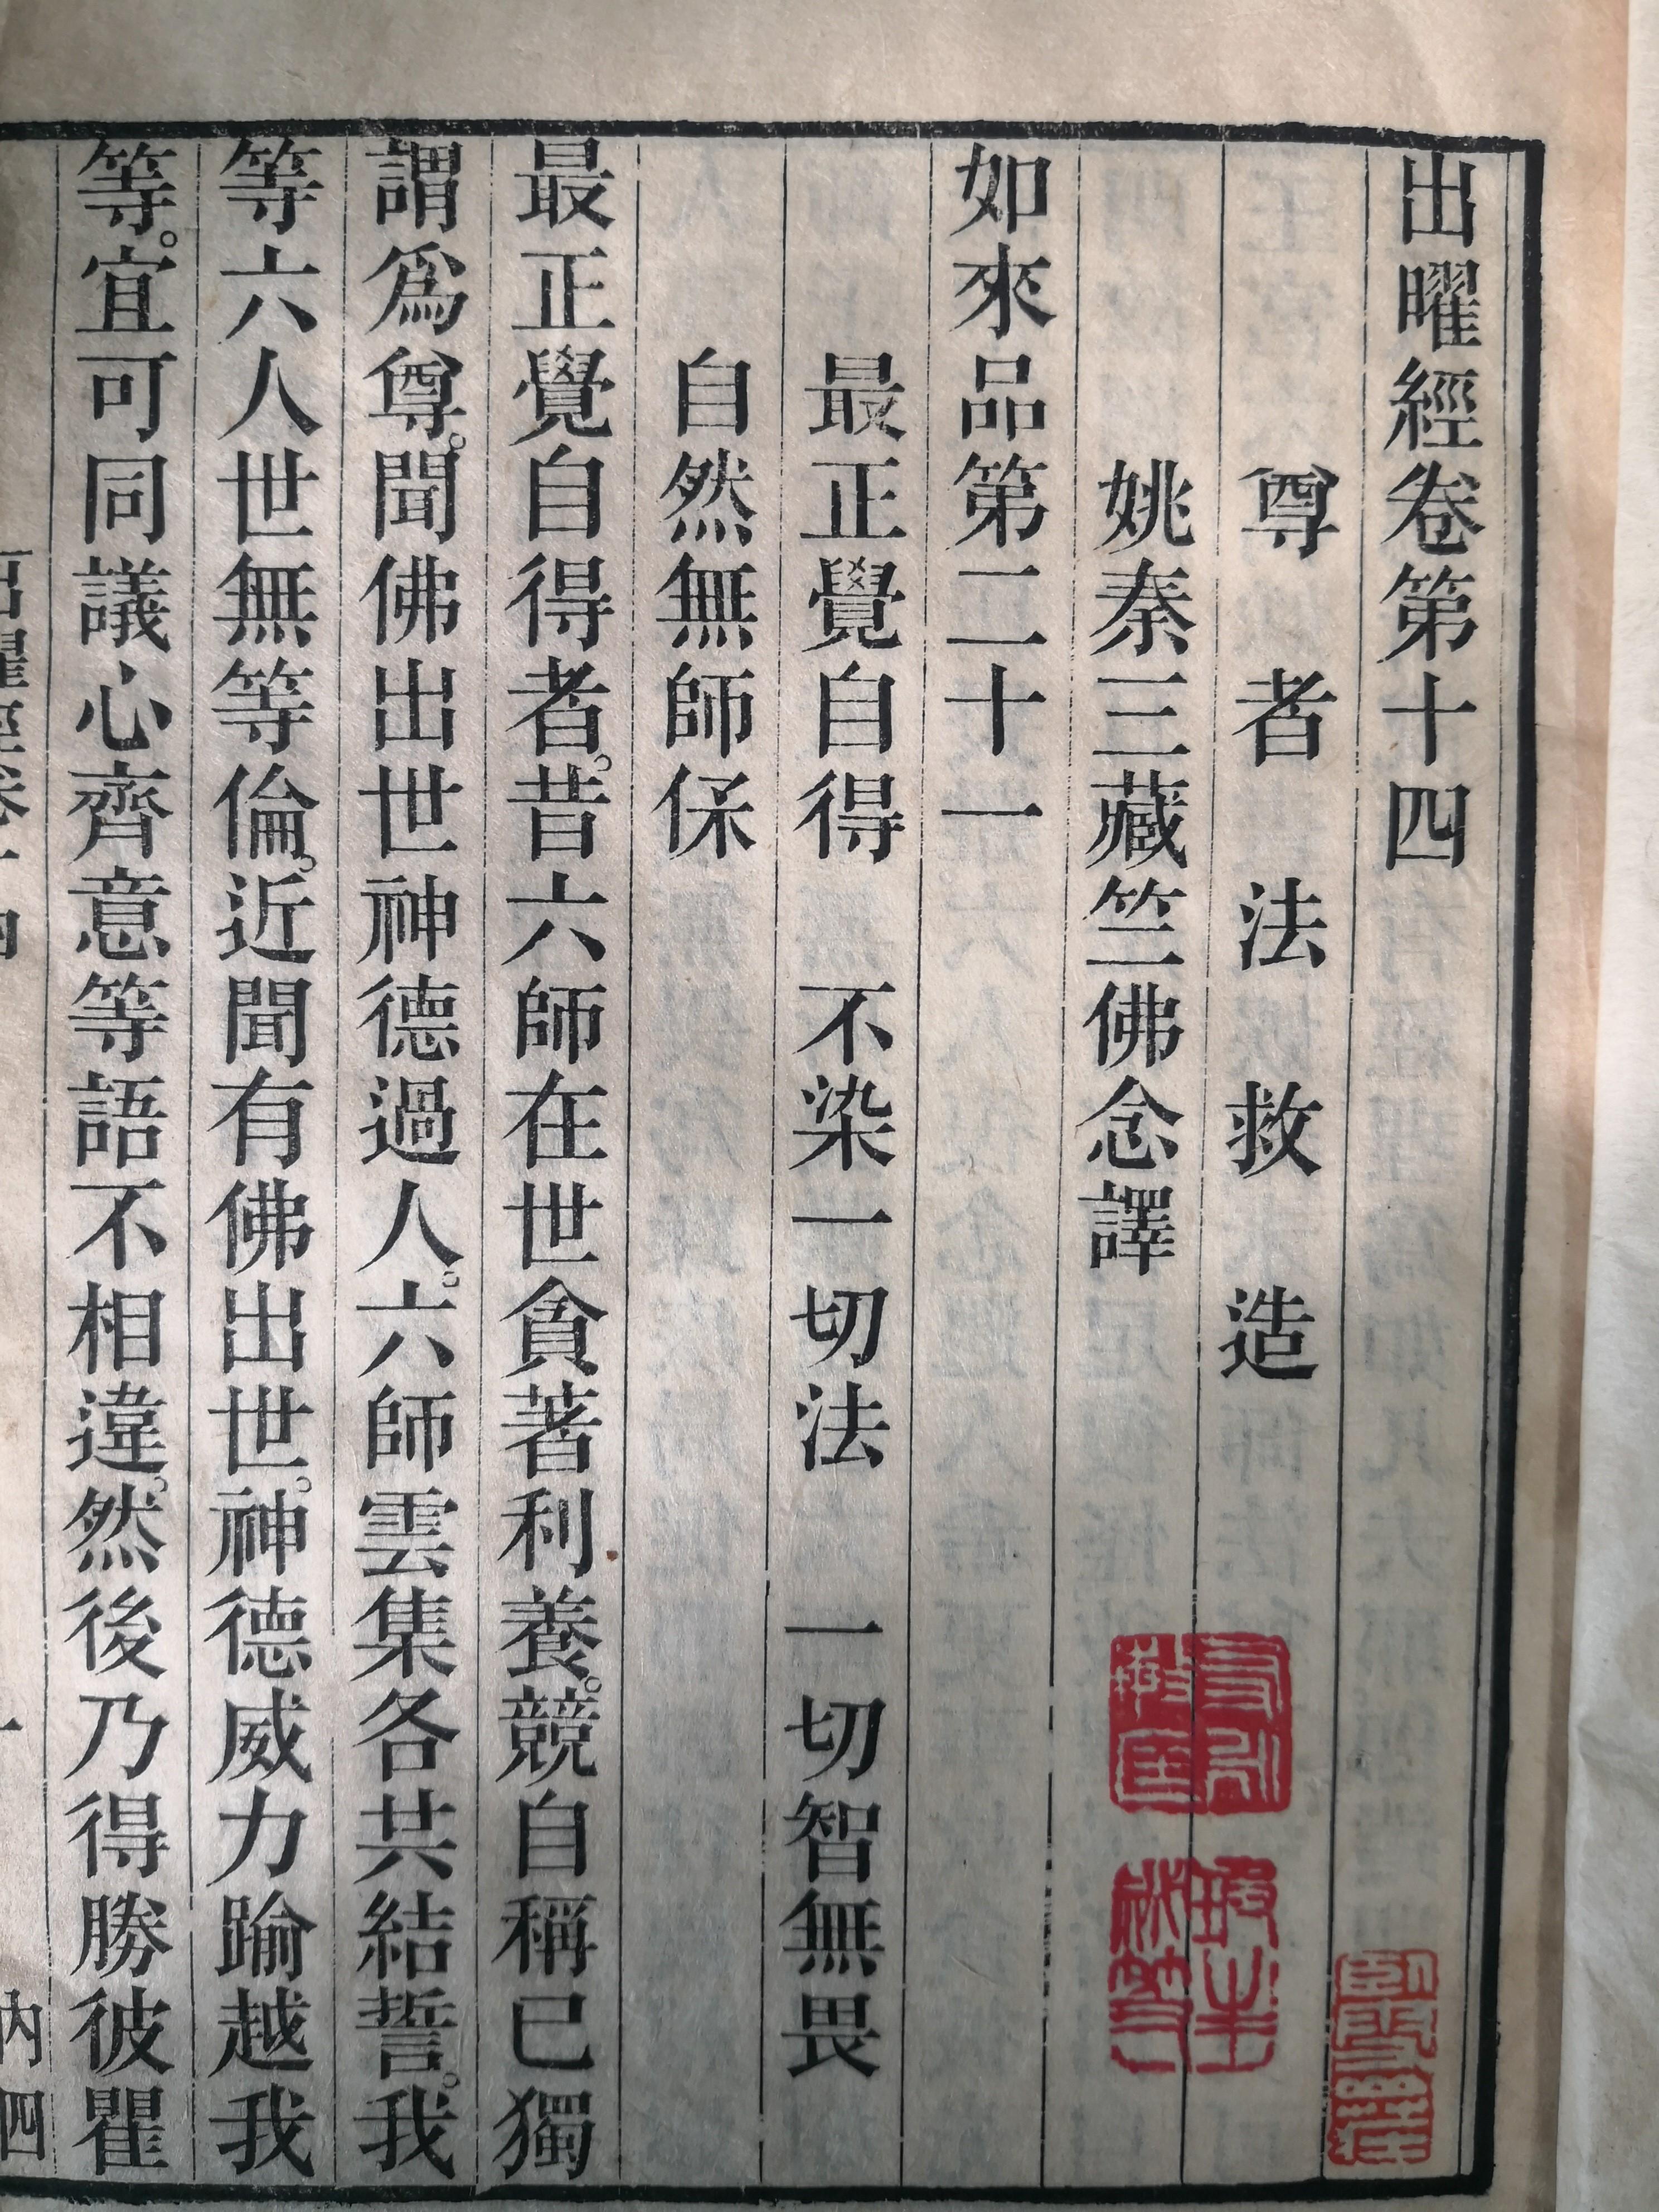 出曜經卷第十四
尊者法救造
姚秦三藏竺佛念譯
如來品第二十一
最正覺自得　不染一切法　一切智無畏
自然無師保
最正覺自得者。昔六師在世貪著利養。競自稱已獨
謂爲尊。聞佛出世神德過人。六師雲集各共結誓。我
等六人世無等倫。近聞有佛出世。神德威力踰越我
等。宜可同議心齊意等語不相違。然後乃得勝彼瞿
出曜經卷十四　一　內四